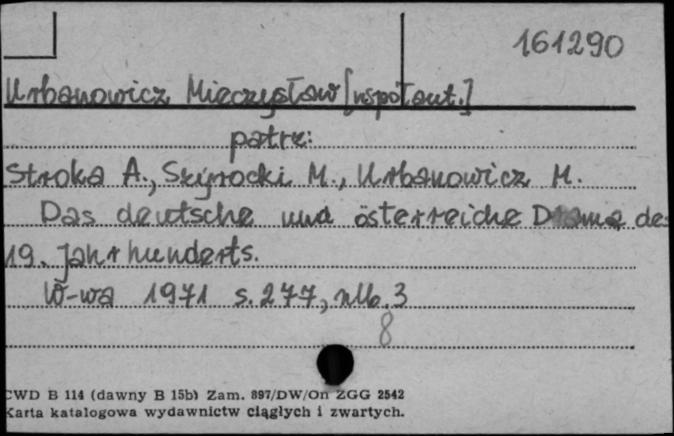 161290
Urbanowicz Mieczysław [współaut.]
patrz:
Stroka A., Szyrocki M., Urbanowicz M.
Das deutsche und österreiche Drama de
19. Jahrhunderts.
W-wa 1971 s. 277, nlb. 3
8
CWD B 114 (dawny B 15b) Zam. 897/DW/On ZGG 2542
Karta katalogowa wydawnictw ciągłych i zwartych.